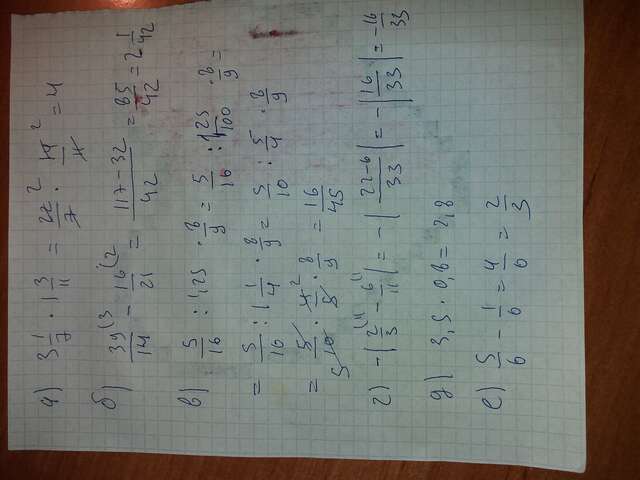 а) 3 1/7 · 1 3/11 = 22/7 2 · 14/11 2 = 4
б) 39(3/14 - 16(2/21 = 117-32/42 = 85/42 = 2 1/42
в) 5/16 : 1,25 · 8/9 = 5/10 : 1 25/100 · 8/9 =
= 5/10 : 1 1/4 · 8/9 = 5/10 : 5/4 · 8/9
= 5/10 5 · 4/5 2 · 8/9 = 16/45
г) -|2(11/3 - 6(1/11| = -|22-6/33| = -|16/33| = -16/33
д) 3,5 · 0,8 = 2,8
е) 5/6 - 1/6 = 4/6 = 2/3